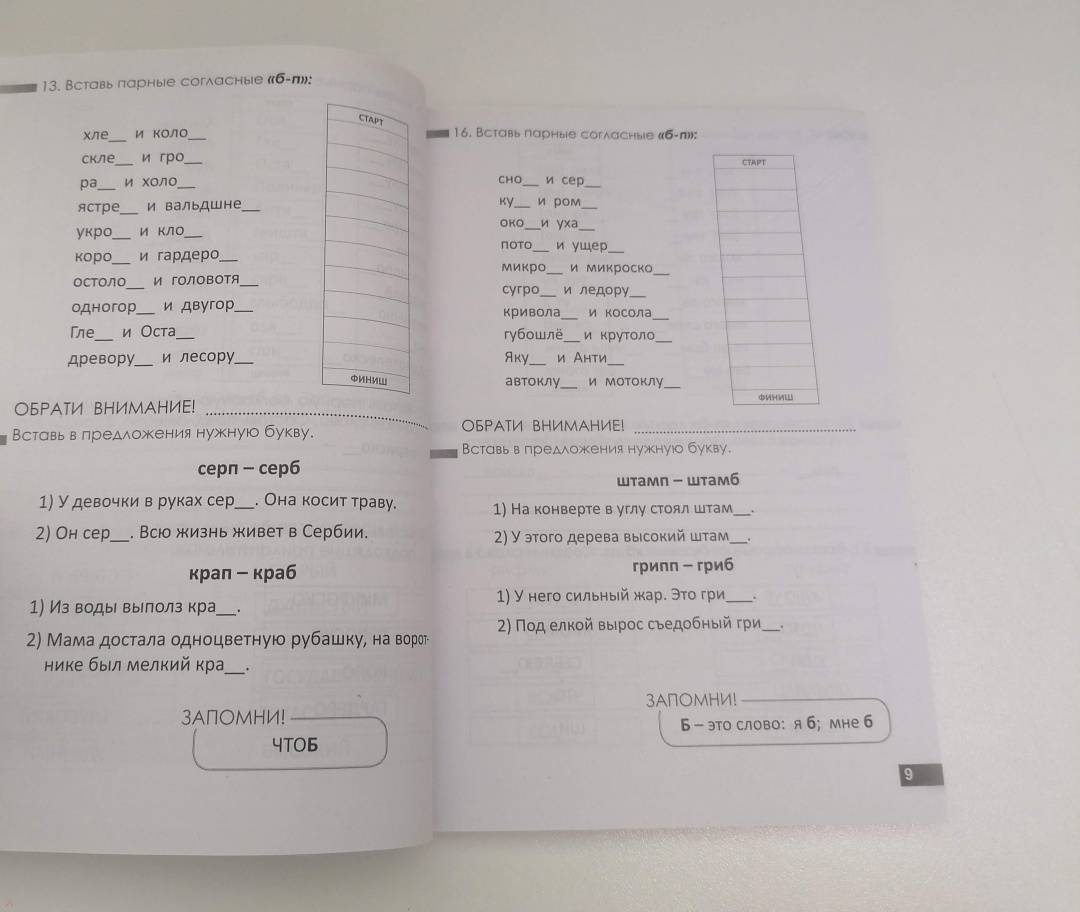 13. Вставь парные согласные «б-п»:
СТАРТ
хле__ и коло__
скле__ и гро__
ра__ и холо__
ястре__ и вальдшне__
укро__ и кло__
коро__ и гардеро__
остоло__ и головотя__
одногор__ и двугор__
Гле__ и Оста__
древору__ и лесору__
ФИНИШ
ОБРАТИ ВНИМАНИЕ!
Вставь в предложения нужную букву.
серп – серб
1) У девочки в руках сер__. Она косит траву.
2) Он сер__. Всю жизнь живет в Сербии.
крап – краб
1) Из воды выполз кра__.
2) Мама достала одноцветную рубашку, на ворот-
нике был мелкий кра__.
ЗАПОМНИ!
ЧТОБ
16. Вставь парные согласные «б-п»:
СТАРТ
сно__ и сер__
ку__ и ром__
око__и уха__
пото__ и ущер__
микро__ и микроско__
сугро__ и ледору__
кривола__ и косола__
губошлё__ и крутоло__
Яку__ и Анти__
автоклу__ и мотоклу__
ФИНИШ
ОБРАТИ ВНИМАНИЕ!
Вставь в предложения нужную букву.
штамп – штамб
1) На конверте в углу стоял штам__.
2) У этого дерева высокий штам__.
грипп – гриб
1) У него сильный жар. Это гри___.
2) Под елкой вырос съедобный гри__.
ЗАПОМНИ!
Б – это слово: я б; мне б
9